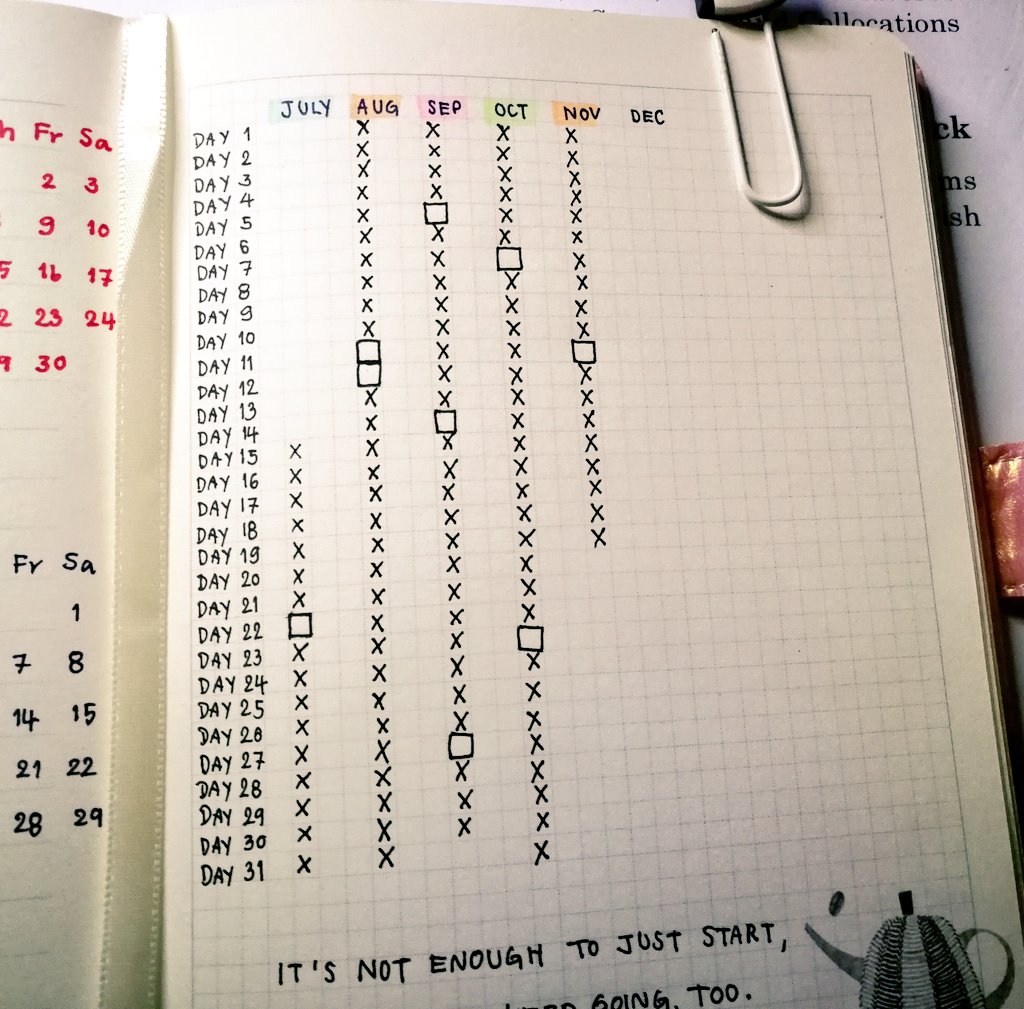 Fr Sa
2 3
9 10
16 17
23 24
30
Fr Sa
1
7 8
14 15
21 22
28 29
JULY AUG SEP OCT NOV DEC
DAY 1
DAY 2
DAY 3
DAY 4
DAY 5
DAY 6
DAY 7
DAY 8
DAY 9
DAY 10
DAY 11
DAY 12
DAY 13
DAY 14
DAY 15
DAY 16
DAY 17
DAY 18
DAY 19
DAY 20
DAY 21
DAY 22
DAY 23
DAY 24
DAY 25
DAY 26
DAY 27
DAY 28
DAY 29
DAY 30
DAY 31
IT'S NOT ENOUGH TO JUST START,
GOING, TOO.
Collocations